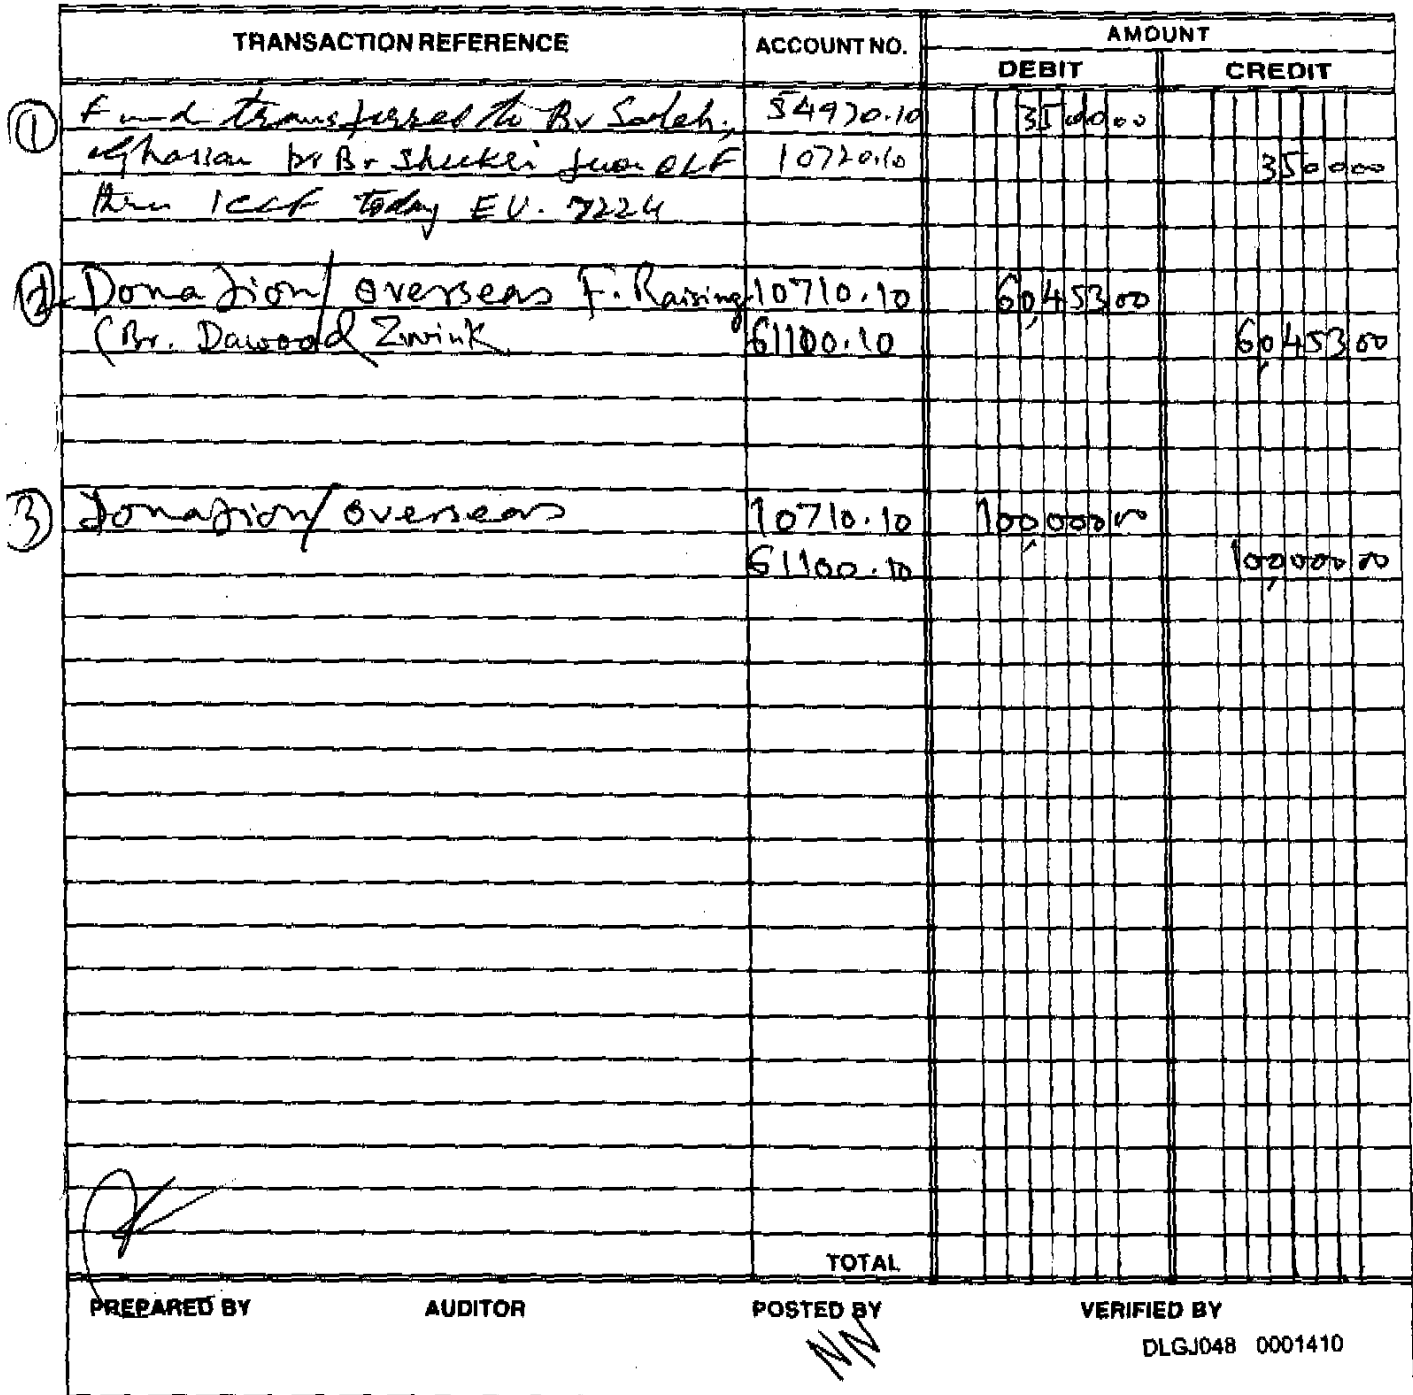 TRANSACTION REFERENCE ACCOUNT NO. AMOUNT
DEBIT CREDIT
① Fund transferred to Br Saleh, 54970.10 3500.00
Br Shukri from 10720.10 3500.00
thru today EV. 7224
② Donation/overseas F. Raising 10710.10 60,453 00
(Br. Dawood Zwink 61100.10 60,453 00
③ Donation/overseas 10710.10 100,000 00
61100.10 100,000 00
TOTAL
PREPARED BY AUDITOR POSTED BY VERIFIED BY
NN
DLGJ048 0001410